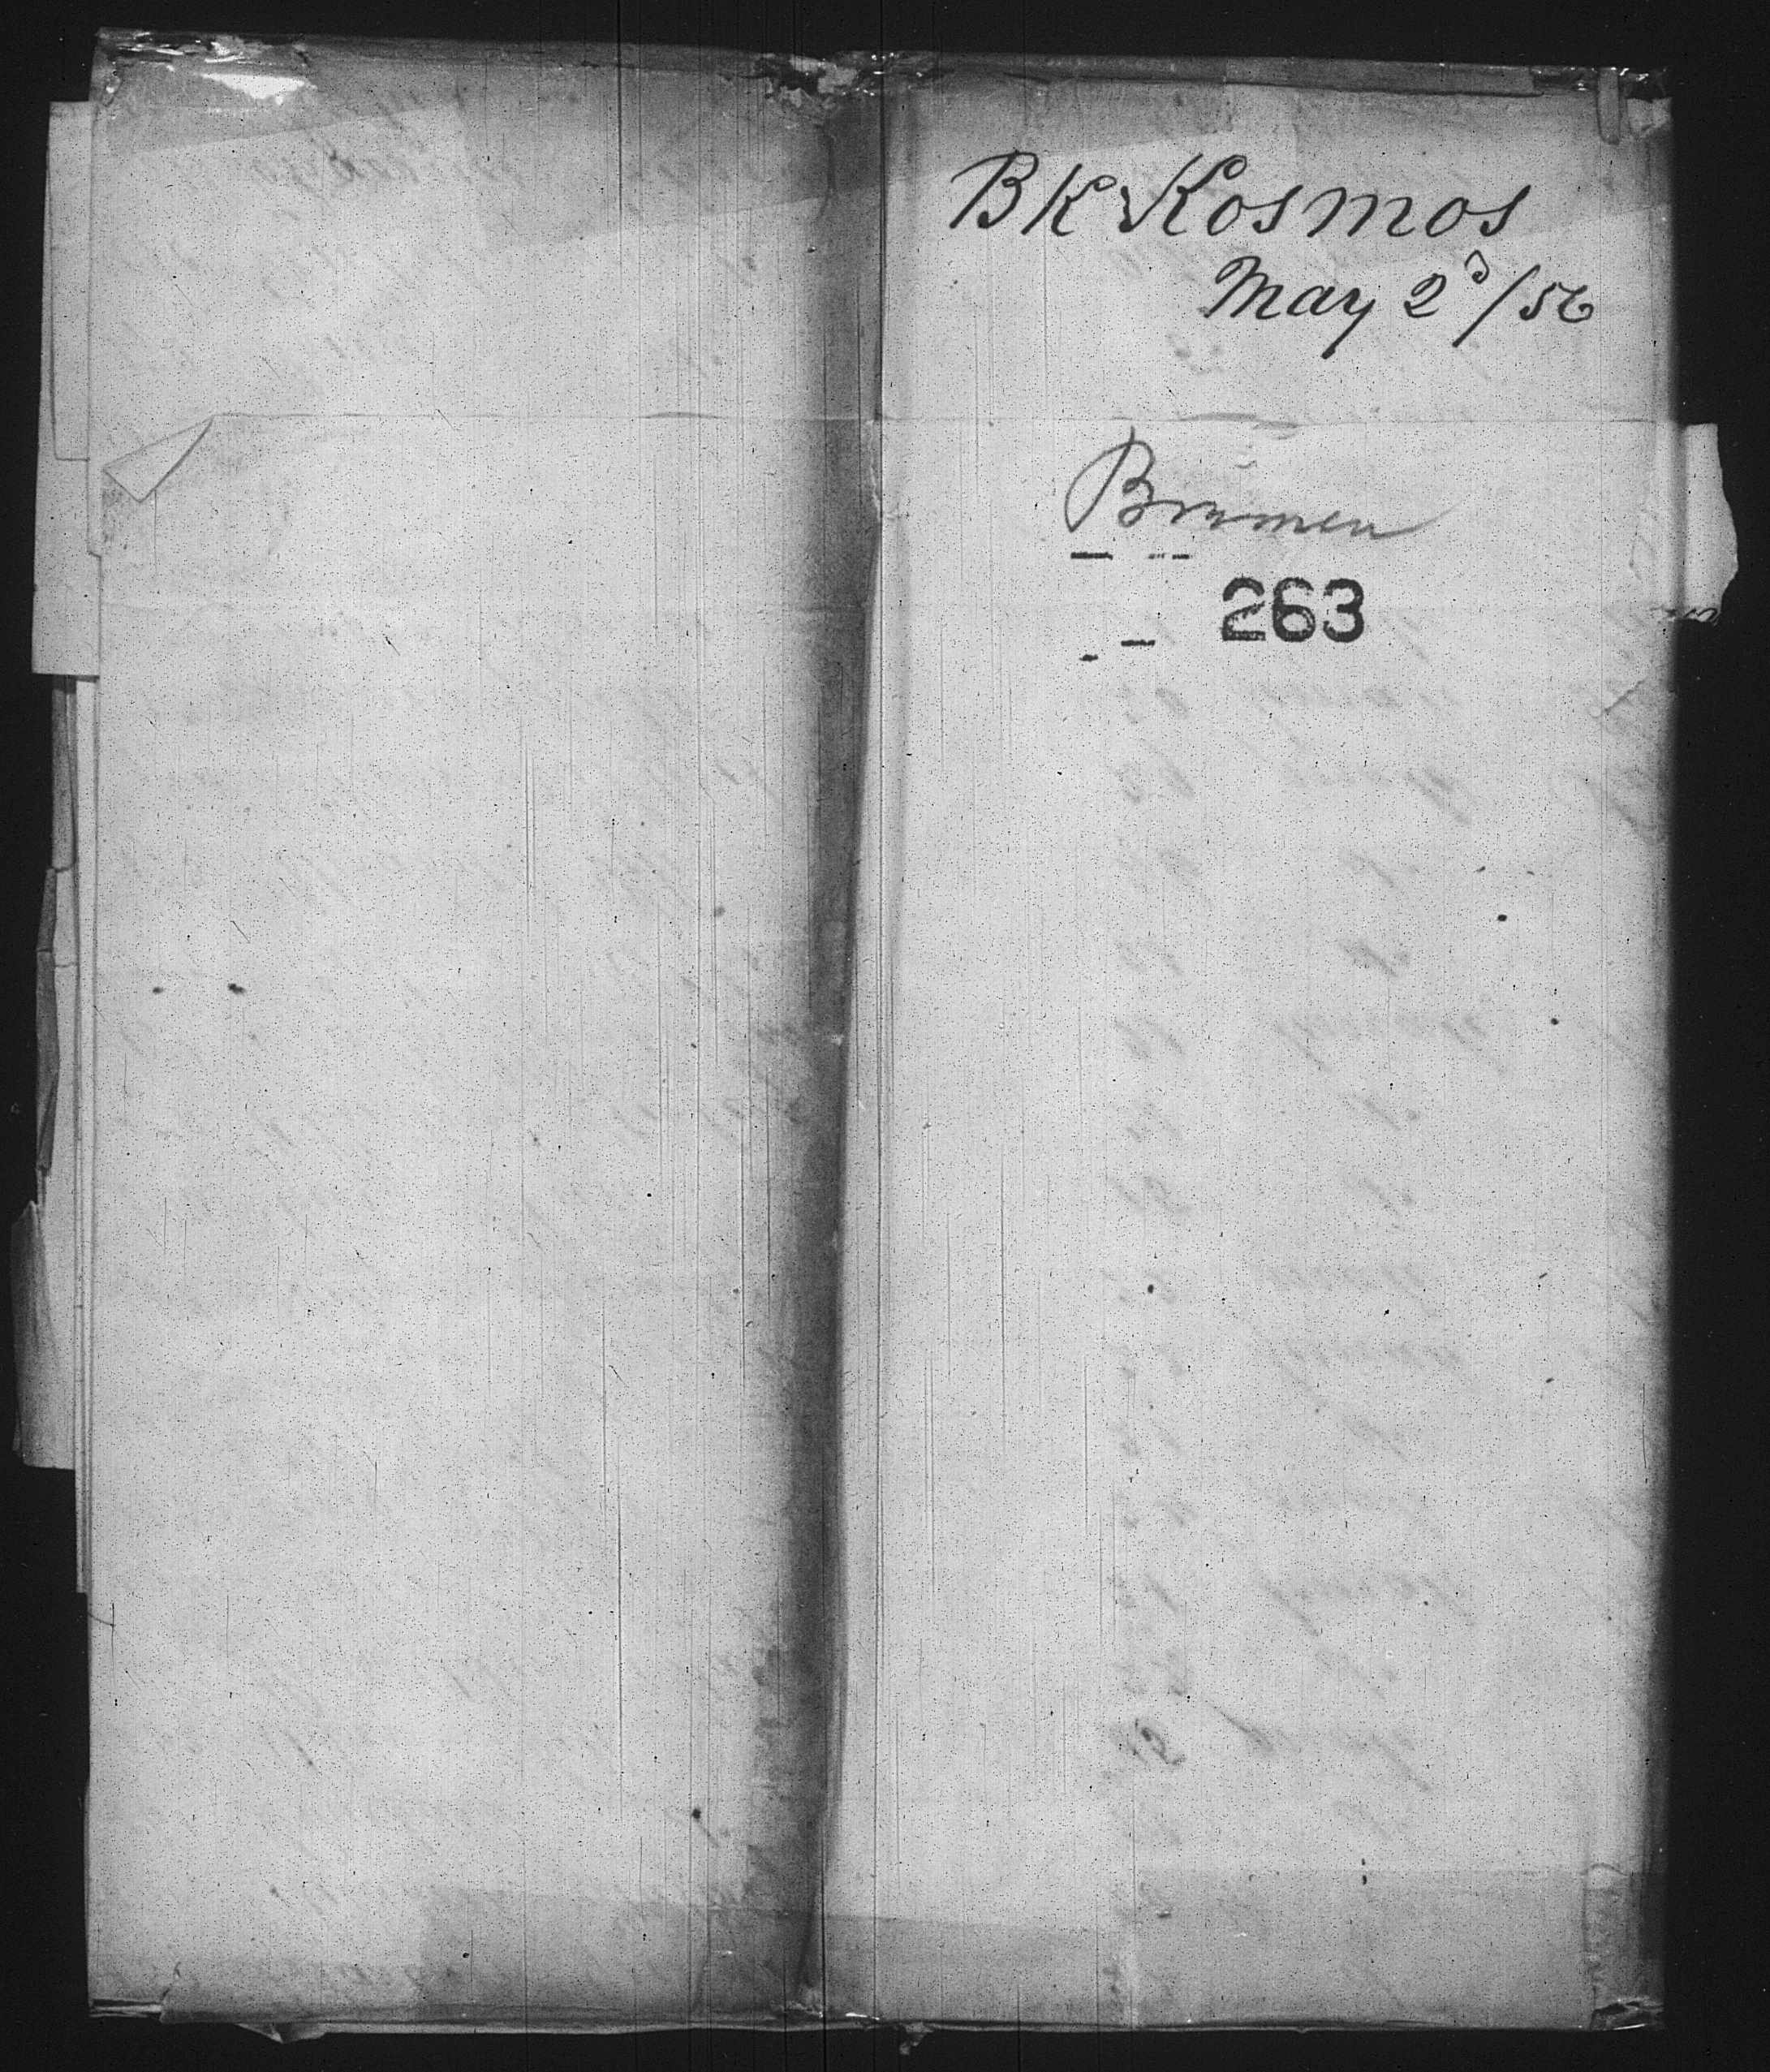 BK Kosmos
May 2d/56
Bremen
263